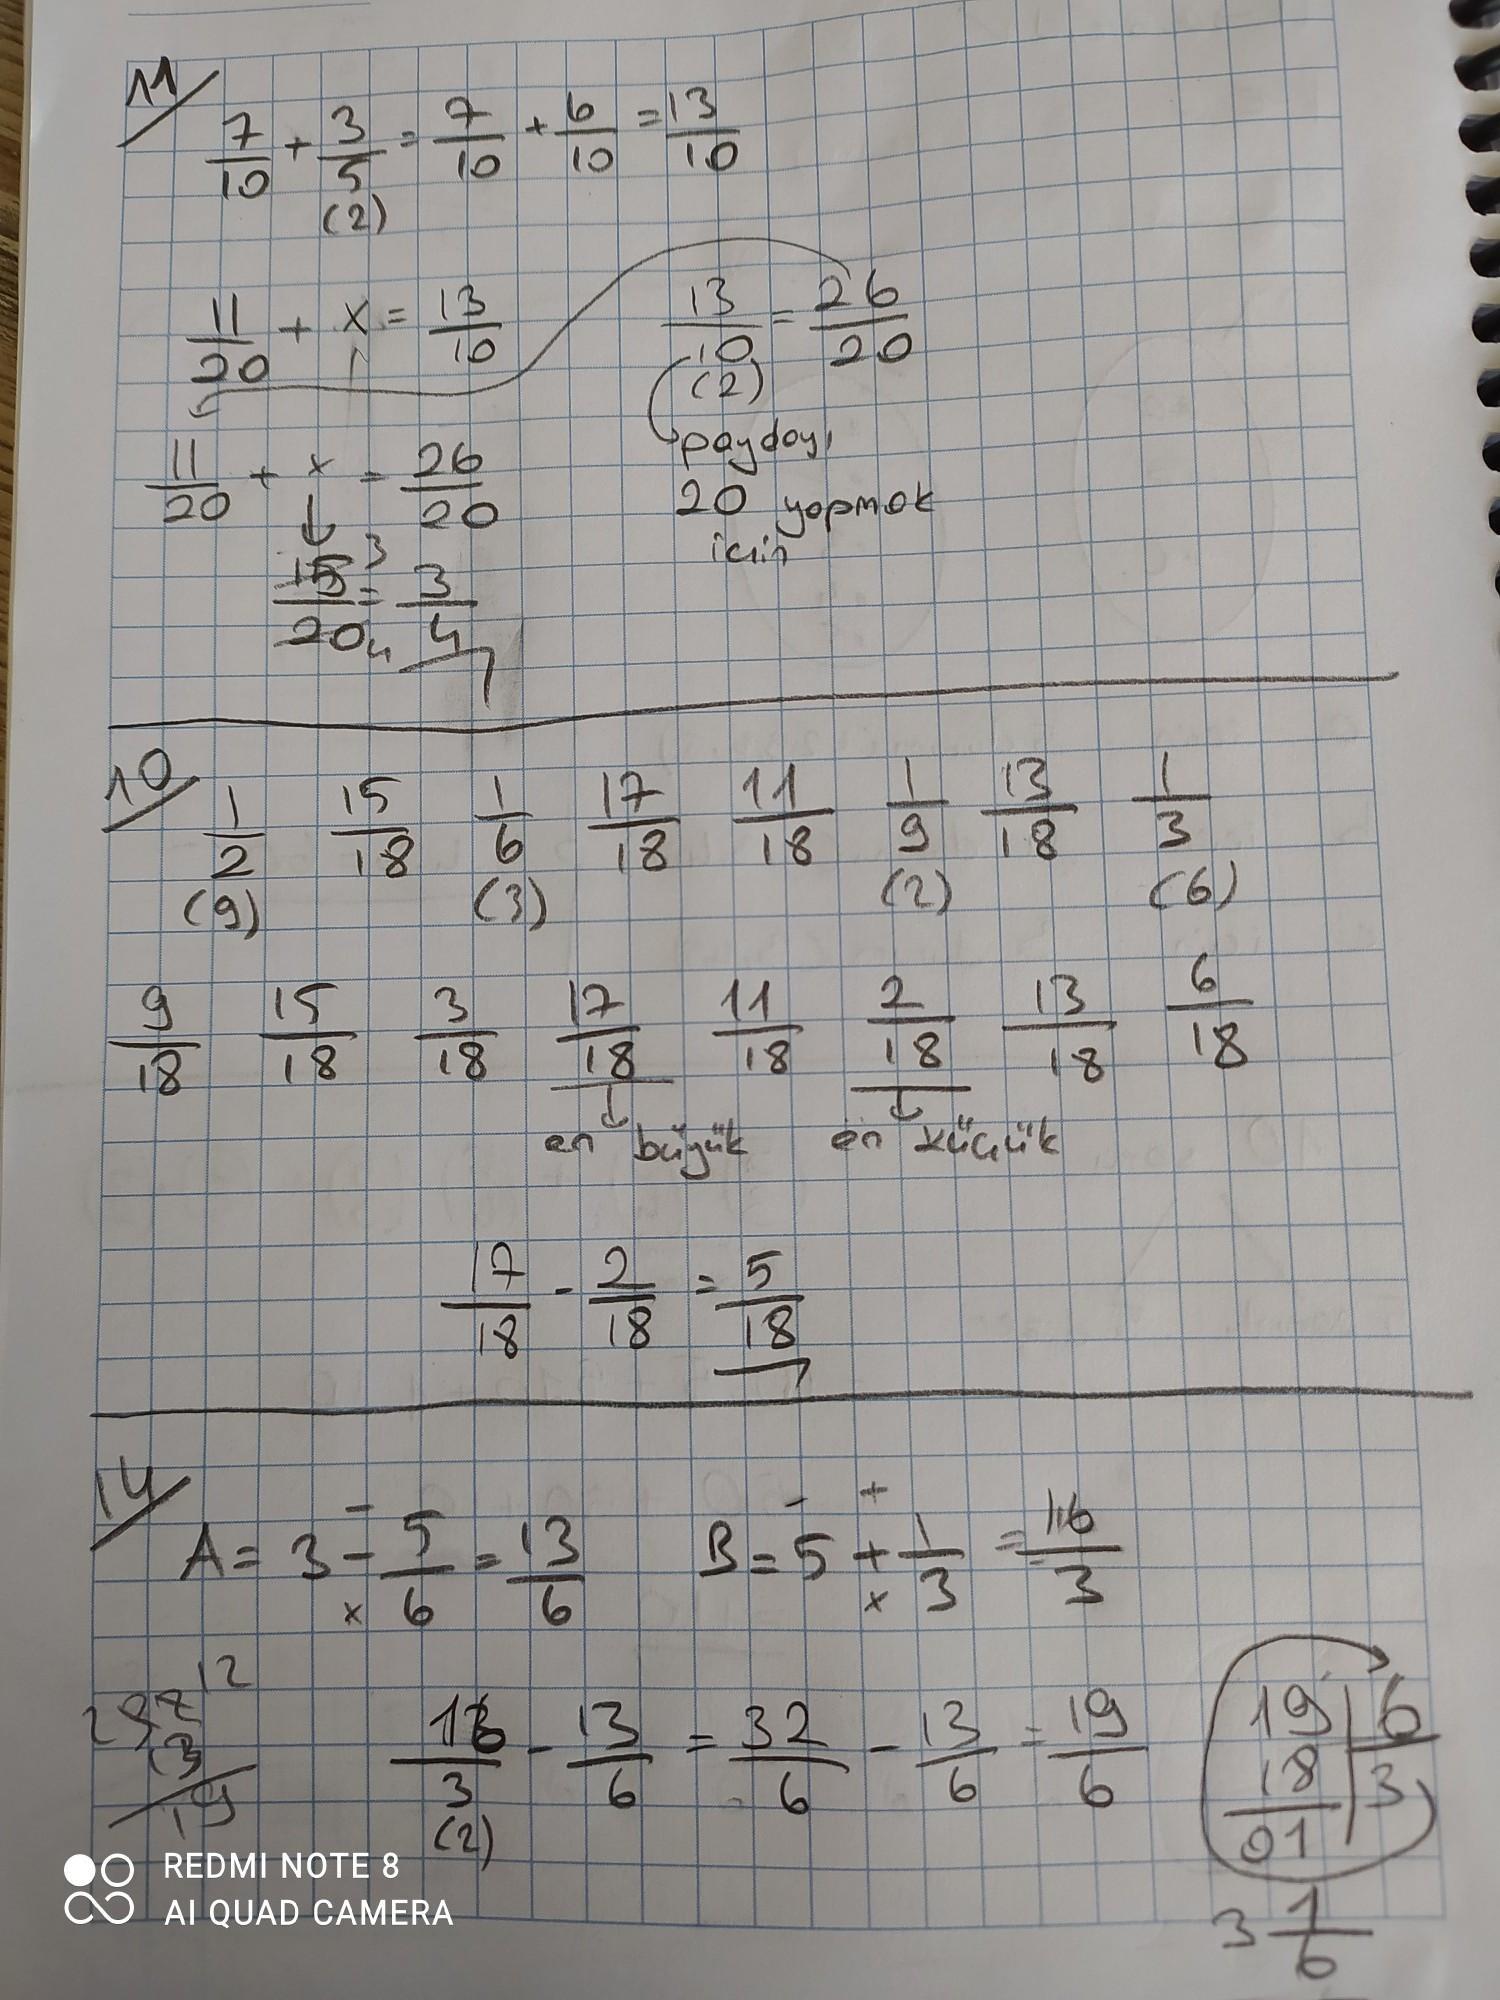 11/
7/10 + 3/5 = 7/10 + 6/10 = 13/10
(2)
11/20 + x = 13/10
13/10 = 26/20
(2)
paydayı
20 yapmak
için
11/20 + x = 26/20
15/20 = 3/4
3
4
10/
1/2 15/18 1/6 17/18 11/18 1/9 13/18 1/3
(9) (3) (2) (6)
9/18 15/18 3/18 17/18 11/18 2/18 13/18 6/18
en büyük en küçük
17/18 - 2/18 = 5/18
14/
- - +
A = 3 - 5/6 = 13/6 B = 5 + 1/3 = 16/3
x x
16/3 - 13/6 = 32/6 - 13/6 = 19/6
(2)
19 6
18 3
01
3 1/6
REDMI NOTE 8
AI QUAD CAMERA